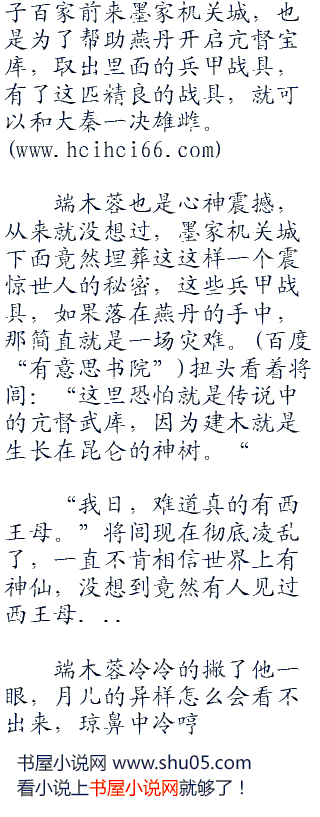 子百家前来墨家机关城，也
是为了帮助燕丹开启亢督宝
库，取出里面的兵甲战具，
有了这匹精良的战具，就可
以和大秦一决雄雌。
(www.hcihci66.com)
端木蓉也是心神震撼，
从来就没想过，墨家机关城
下面竟然埋葬这这样一个震
惊世人的秘密，这些兵甲战
具，如果落在燕丹的手中，
那简直就是一场灾难。(百度
“有意思书院”)扭头看着将
闾：“这里恐怕就是传说中
的亢督武库，因为建木就是
生长在昆仑的神树。“
“我日，难道真的有西
王母。”将闾现在彻底凌乱
了，一直不肯相信世界上有
神仙，没想到竟然有人见过
西王母．．．
端木蓉冷冷的撇了他一
眼，月儿的异样怎么会看不
出来，琼鼻中冷哼
书屋小说网 www.shu05.com
看小说上书屋小说网就够了！